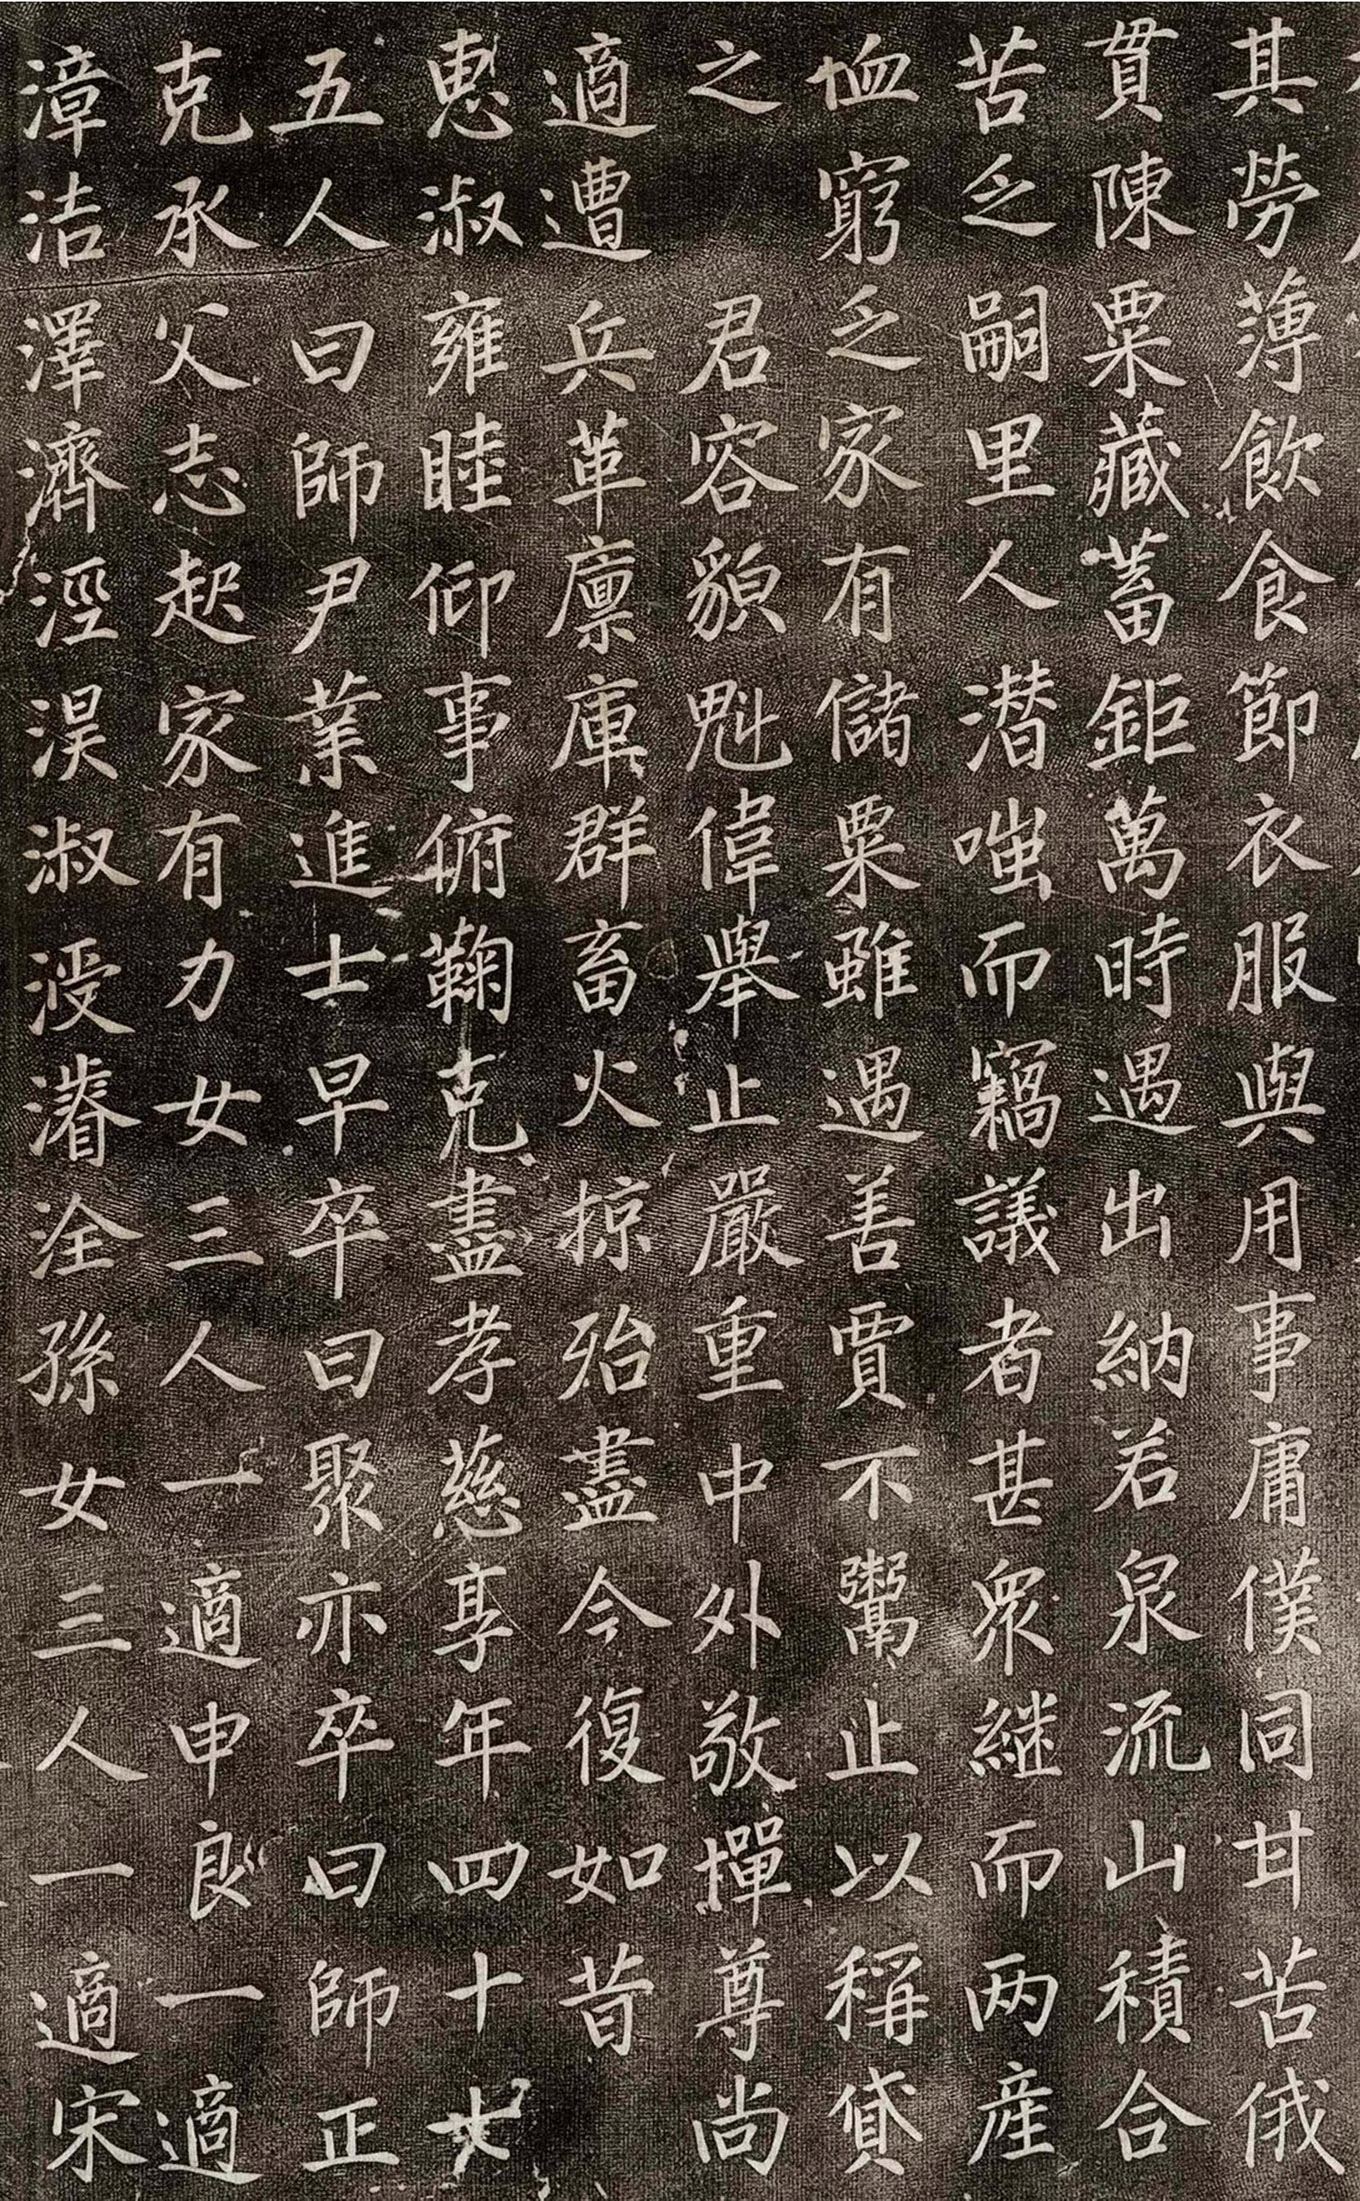 其勞薄飲食節衣服與用事庸僕同甘苦俄
貫陳粟藏蓄鉅萬時遇出納若泉流山積合
苦乏嗣里人潜嗤而竊議者甚衆継而两産
恤窮乏家有儲粟雖遇善賈不鬻止以稱貸
之 君容貌魁偉舉止嚴重中外敬憚尊尚
適遭兵革廪庫群畜火掠殆盡今復如昔
惠淑雍睦仰事俯鞠克盡孝慈享年四十
五人曰師尹業進士早卒曰聚亦卒曰師正
克承父志起家有力女三人一適申良一適
漳洁澤濟涇淏淑浸濬洤孫女三人一適宋